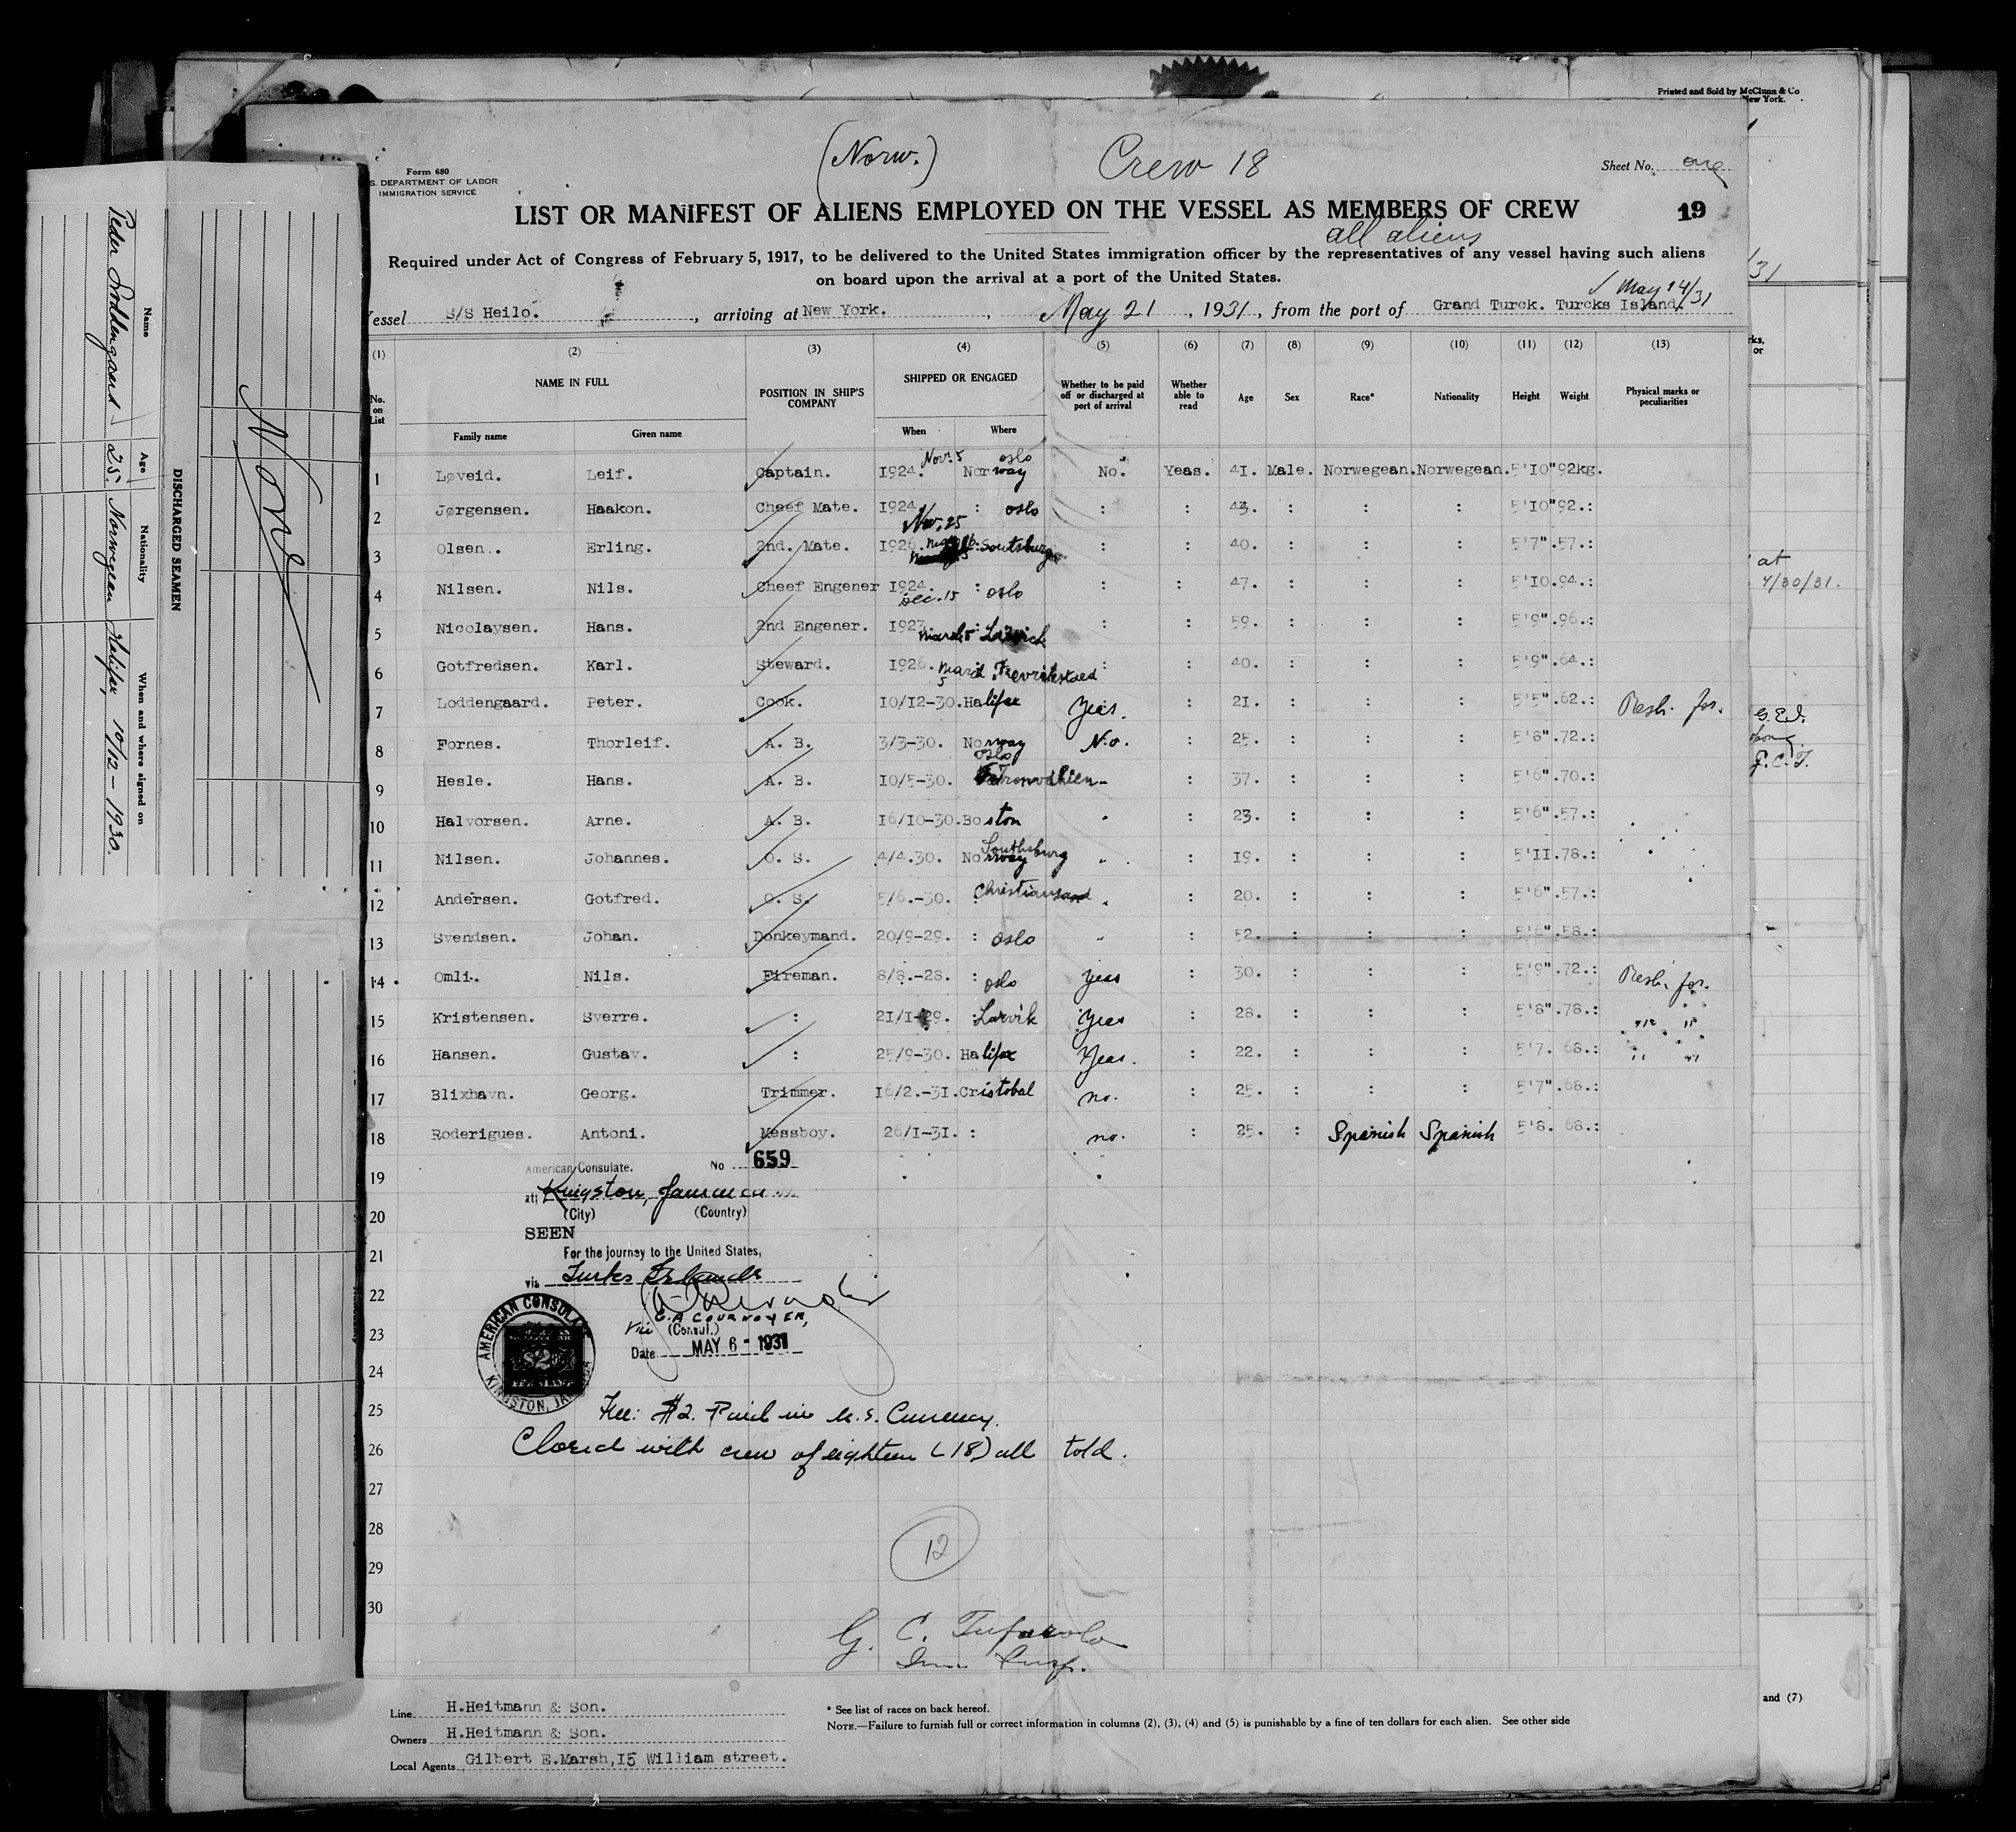 Printed and Sold by McClunn & Co
New York.
(Norw.)
Crew 18
Form 680
S. DEPARTMENT OF LABOR
IMMIGRATION SERVICE
Sheet No. one
LIST OR MANIFEST OF ALIENS EMPLOYED ON THE VESSEL AS MEMBERS OF CREW
19
all aliens
Required under Act of Congress of February 5, 1917, to be delivered to the United States immigration officer by the representatives of any vessel having such aliens
on board upon the arrival at a port of the United States.
May 14/31
Vessel S/S Heilo. , arriving at New York. , May 21 , 1931, from the port of Grand Turck. Turcks Island.
(1) (2) (3) (4) (5) (6) (7) (8) (9) (10) (11) (12) (13)
No. on List NAME IN FULL POSITION IN SHIP'S COMPANY SHIPPED OR ENGAGED Whether to be paid off or discharged at port of arrival Whether able to read Age Sex Race* Nationality Height Weight Physical marks or peculiarities
Family name Given name When Where
1 Løveid. Leif. Captain. 1924. Nov. 5 Norway oslo No. Yeas. 41. Male. Norwegean. Norwegean. 5'10" 92kg.
2 Jørgensen. Haakon. Cheef Mate. 1924 Nov. 25 : oslo : : 43. : : : 5'10" 92.:
3 Olsen.. Erling. 2nd. Mate. 1926. : : : 40. : : : 5'7" .57.:
4 Nilsen. Nils. Cheef Engener 1924. Dec. 15 : oslo : : 47. : : : 5'10. 94.:
5 Nicolaysen. Hans. 2nd Engener. 1923 : : : 59. : : : 5'9" .96.:
6 Gotfredsen. Karl. Steward. 1926. : : 40. : : : 5'9" .64.:
7 Loddengaard. Peter. Cook. 10/12-30. Halifax Yeas. : 21. : : : 5'5" .62.: Resh. for.
8 Fornes. Thorleif. A. B. 3/3-30. Norway oslo No. : 25. : : : 5'8" .72.:
9 Hesle. Hans. A. B. 10/5-30. : 37. : : : 5'6" .70.:
10 Halvorsen. Arne. A. B. 16/10-30. Boston " : 23. : : : 5'6" .57.:
11 Nilsen. Johannes. O. S. 4/4.30. Norway " : 19. : : : 5'11 .78.:
12 Andersen. Gotfred. O. S. 5/6.-30. : Christiansand " : 20. : : : 5'6" .57.:
13 Svendsen. Johan. Donkeymand. 20/9-29. : oslo " : 52. : : : 5'6" .58.:
14 Omli. Nils. Fireman. 8/8.-28. : oslo yeas : 30. : : : 5'9" .72.: Resh. for.
15 Kristensen. Sverre. : 21/1-29. : Larvik Yeas : 28. : : : 5'8" .78.: " "
16 Hansen. Gustav. : 25/9-30. Halifax Yeas. : 22. : : : 5'7. 68.: " "
17 Blixhavn. Georg. Trimmer. 16/2.-31. Cristobal no. : 25. : : : 5'7" .68.:
18 Roderigues. Antoni. Messboy. 26/1-31. : no. : 25. : Spanish Spanish 5'8. 68.:
19
20
21
22
23
24
25
26
27
28
29
30
American Consulate. No 659
at Kingston, Jamaica
(City) (Country)
SEEN
For the journey to the United States,
via Turks Islands
E. A COURNOYER,
Vice (Consul.)
Date MAY 6 - 1931
AMERICAN CONSULATE
KINGSTON, JAMAICA
$2
Fee: $2. Paid in U.S. Currency.
Closed with crew of eighteen (18) all told.
12
G. C. Tufarolo
Imm. Insp.
Line H.Heitmann & Son.
Owners H.Heitmann & Son.
Local Agents Gilbert E.Marsh, 15 William street.
* See list of races on back hereof.
NOTE.—Failure to furnish full or correct information in columns (2), (3), (4) and (5) is punishable by a fine of ten dollars for each alien. See other side
DISCHARGED SEAMEN
Name Age Nationality When and where signed on
Peder Loddengaard 25. Norwegean Halifax, 10/12 - 1930.
None
/31
rks,
or
at
4/30/31.
G. E. I.
J. C. T.
and (7)